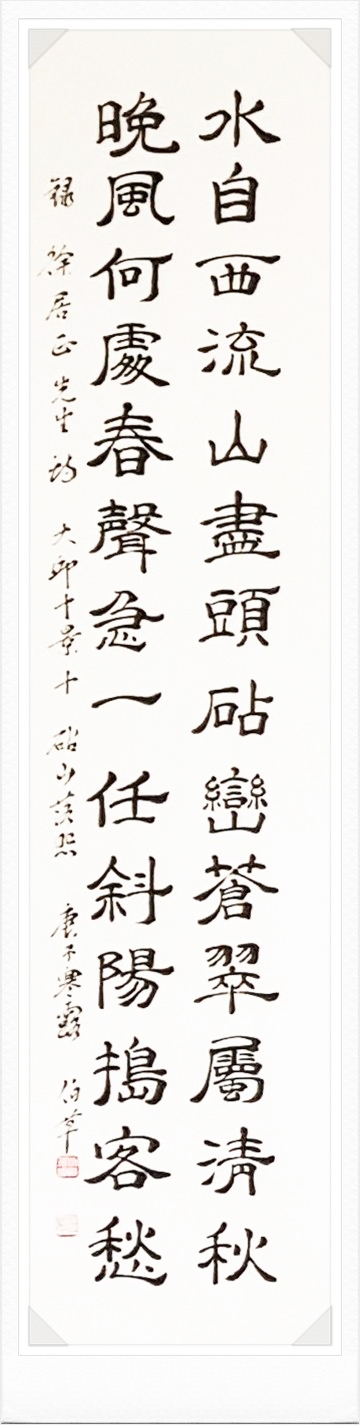 水自西流山盡頭砧巒蒼翠屬清秋
晩風何處春聲急一任斜陽搗客愁
錄 徐居正先生詩 大邱十景 十 砧山落照 庚子寒露 伯草